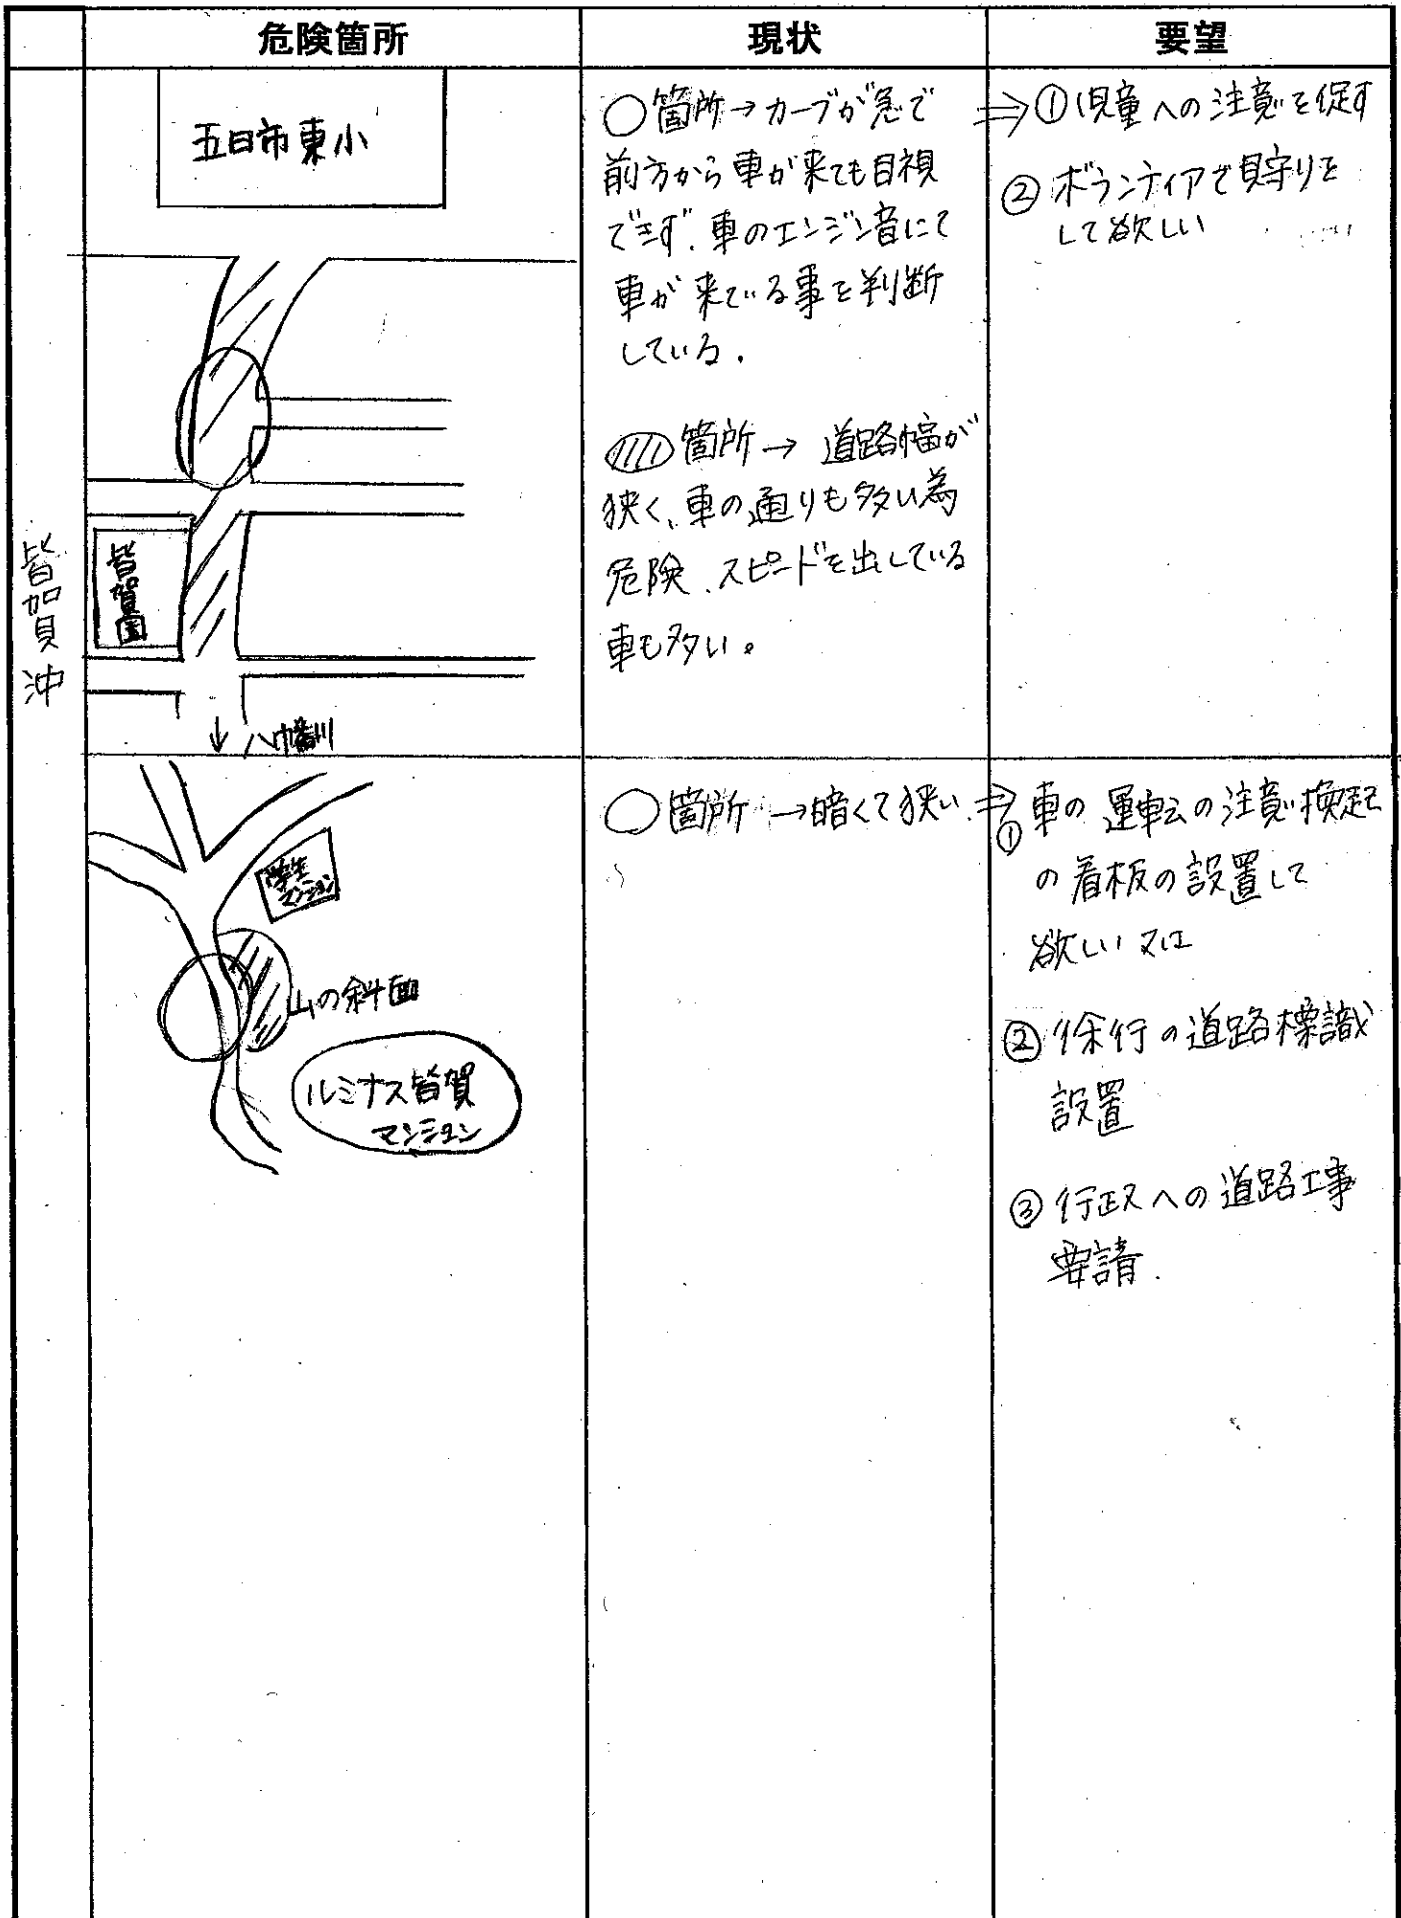 危険箇所 現状 要望
皆賀沖
五日市東小
皆賀園
↓ 八幡川
○箇所→カーブが急で
前方から車が来ても目視
できず、車のエンジン音にて
車が来ている事を判断
している.
箇所→ 道路幅が
狭く、車の通りも多い為
危険、スピードを出している
車も多い。
⇒①児童への注意を促す
②ボランティアで見守りを
して欲しい
学生
マンション
山の斜面
ルミナス皆賀
マンション
○箇所→暗くて狭い.
⇒①車の運転の注意換起
の看板の設置して
欲しい 又は
②徐行の道路標識
設置
③行政への道路工事
要請.